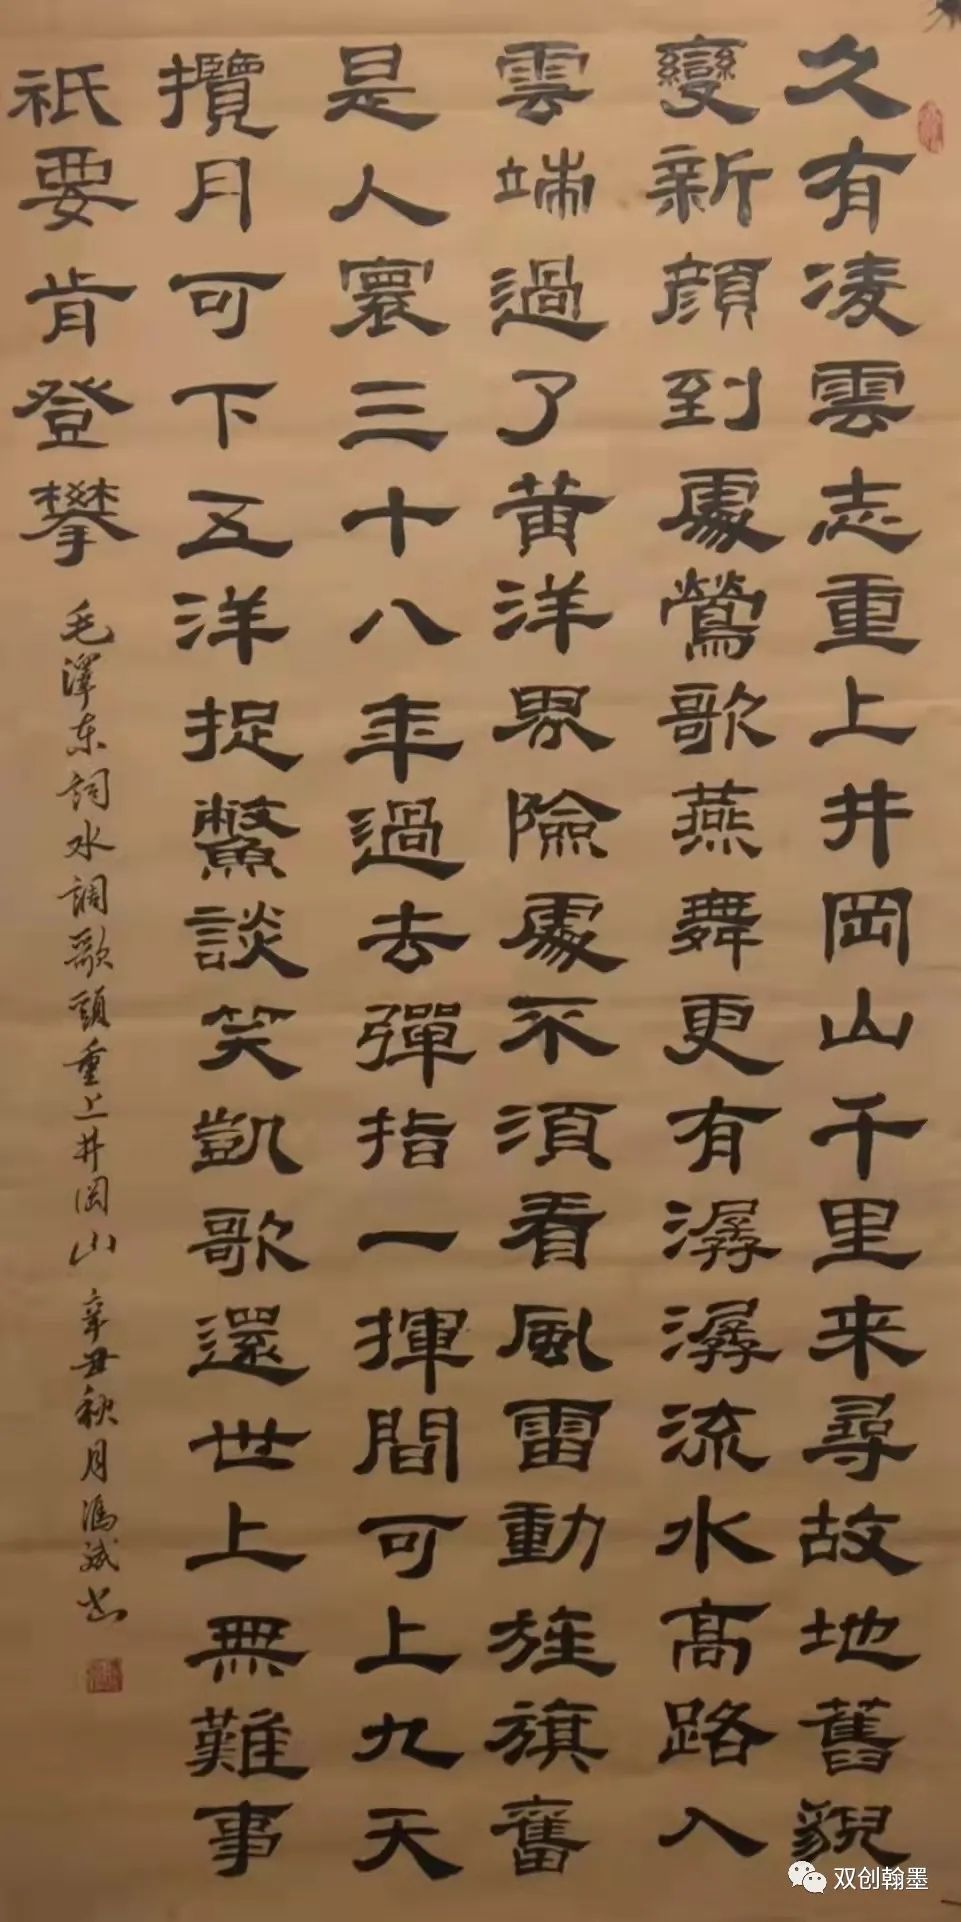 久有凌雲志重上井岡山千里来尋故地舊貌
變新顔到處鶯歌燕舞更有潺潺流水高路入
雲端過了黄洋界險處不須看風雷動旌旗奮
是人寰三十八年過去彈指一揮間可上九天
攬月可下五洋捉鱉談笑凱歌還世上無難事
祇要肯登攀
毛澤东詞水調歌頭重上井岡山 辛丑秋月馮斌书
双创翰墨